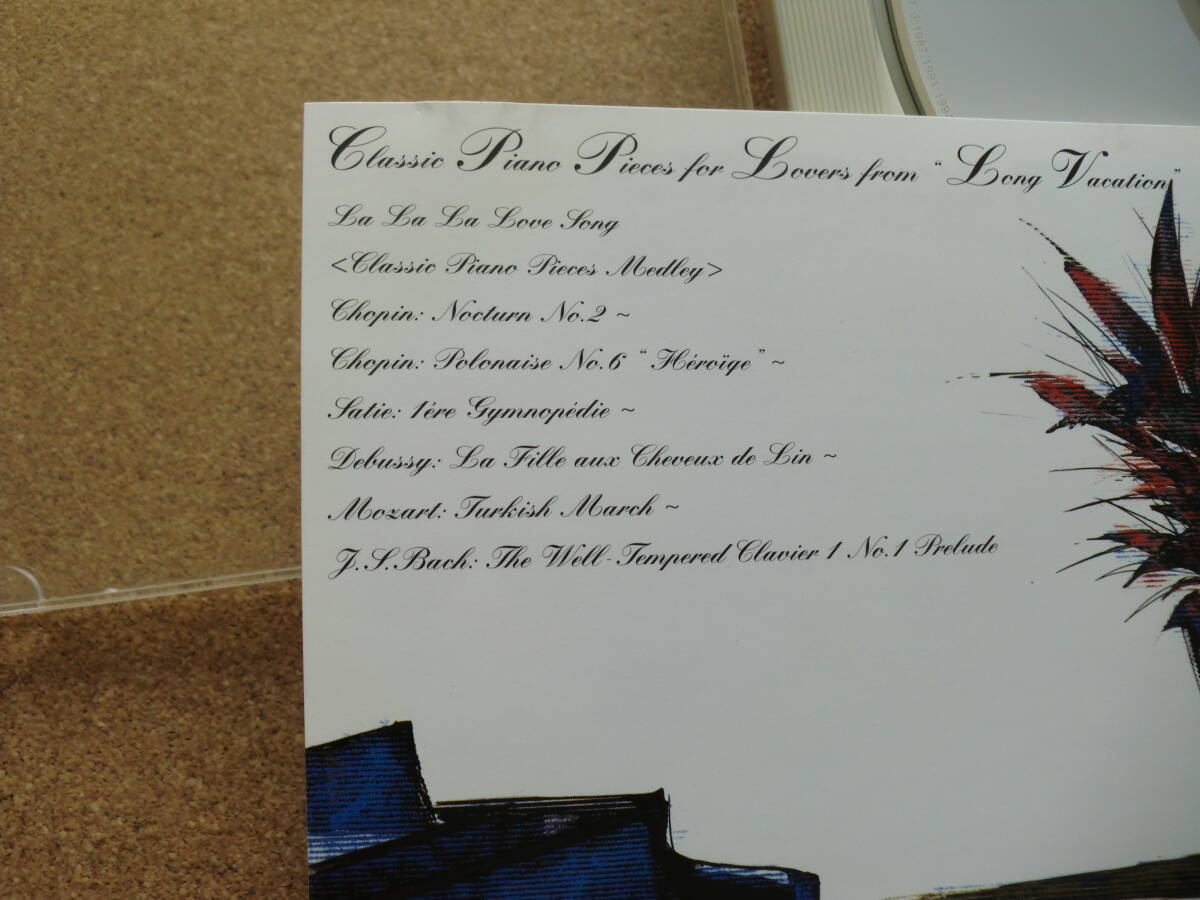 ℗1987 1991 199
Classic Piano Pieces for Lovers from "Long Vacation"
La La La Love Song
<Classic Piano Pieces Medley>
Chopin: Nocturn No.2 ~
Chopin: Polonaise No.6 "Héroïqe" ~
Satie: 1ére Gymnopédie ~
Debussy: La Fille aux Cheveux de Lin ~
Mozart: Turkish March ~
J.S.Bach: The Well-Tempered Clavier 1 No.1 Prelude